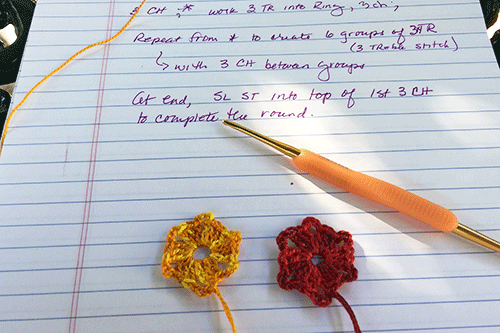 CH * work 3 TR into Ring, 3 ch,
Repeat from * to create 6 groups of 3TR
(3 TReble stitch)
↳ with 3 CH between groups
At end, SL ST into top of 1st 3 CH
to complete the round.